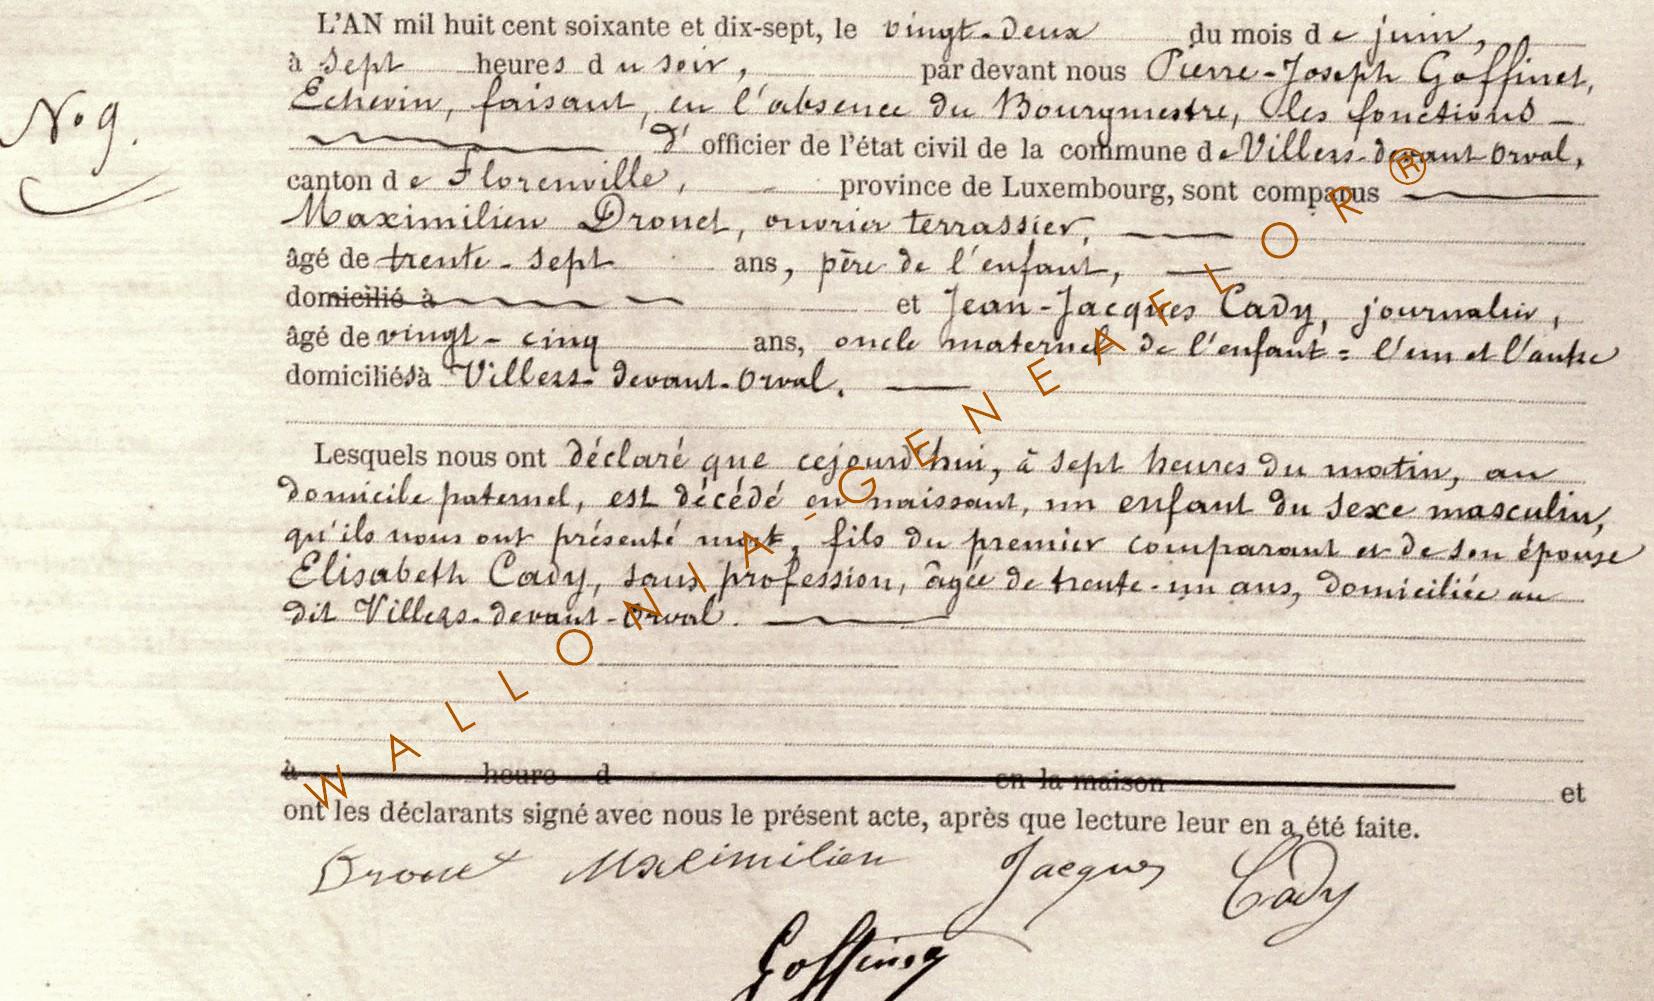 L'AN mil huit cent soixante et dix-sept, le vingt-deux du mois de juin,
à sept heures du soir, par devant nous Pierre-Joseph Goffinet,
Echevin, faisant, en l'absence du Bourgmestre, les fonctions
N° 9.
d'officier de l'état civil de la commune de Villers-devant-Orval,
canton de Florenville, province de Luxembourg, sont comparus
Maximilien Drouet, ouvrier terrassier,
âgé de trente-sept ans, père de l'enfant,
domicilié à et Jean-Jacques Cady, journalier,
âgé de vingt-cinq ans, oncle maternel de l'enfant = l'un et l'autre
domiciliés à Villers-devant-Orval.
Lesquels nous ont déclaré que cejourd'hui, à sept heures du matin, au
domicile paternel, est décédé en naissant, un enfant du sexe masculin,
qu'ils nous ont présenté mort, fils du premier comparant et de son épouse
Elisabeth Cady, sans profession, âgée de trente-un ans, domiciliée au
dit Villers-devant-Orval.
à heure d en la maison et
ont les déclarants signé avec nous le présent acte, après que lecture leur en a été faite.
Drouet Maximilien Jacques Cady
Goffinet
WALLONIA-GENEAFLOR®